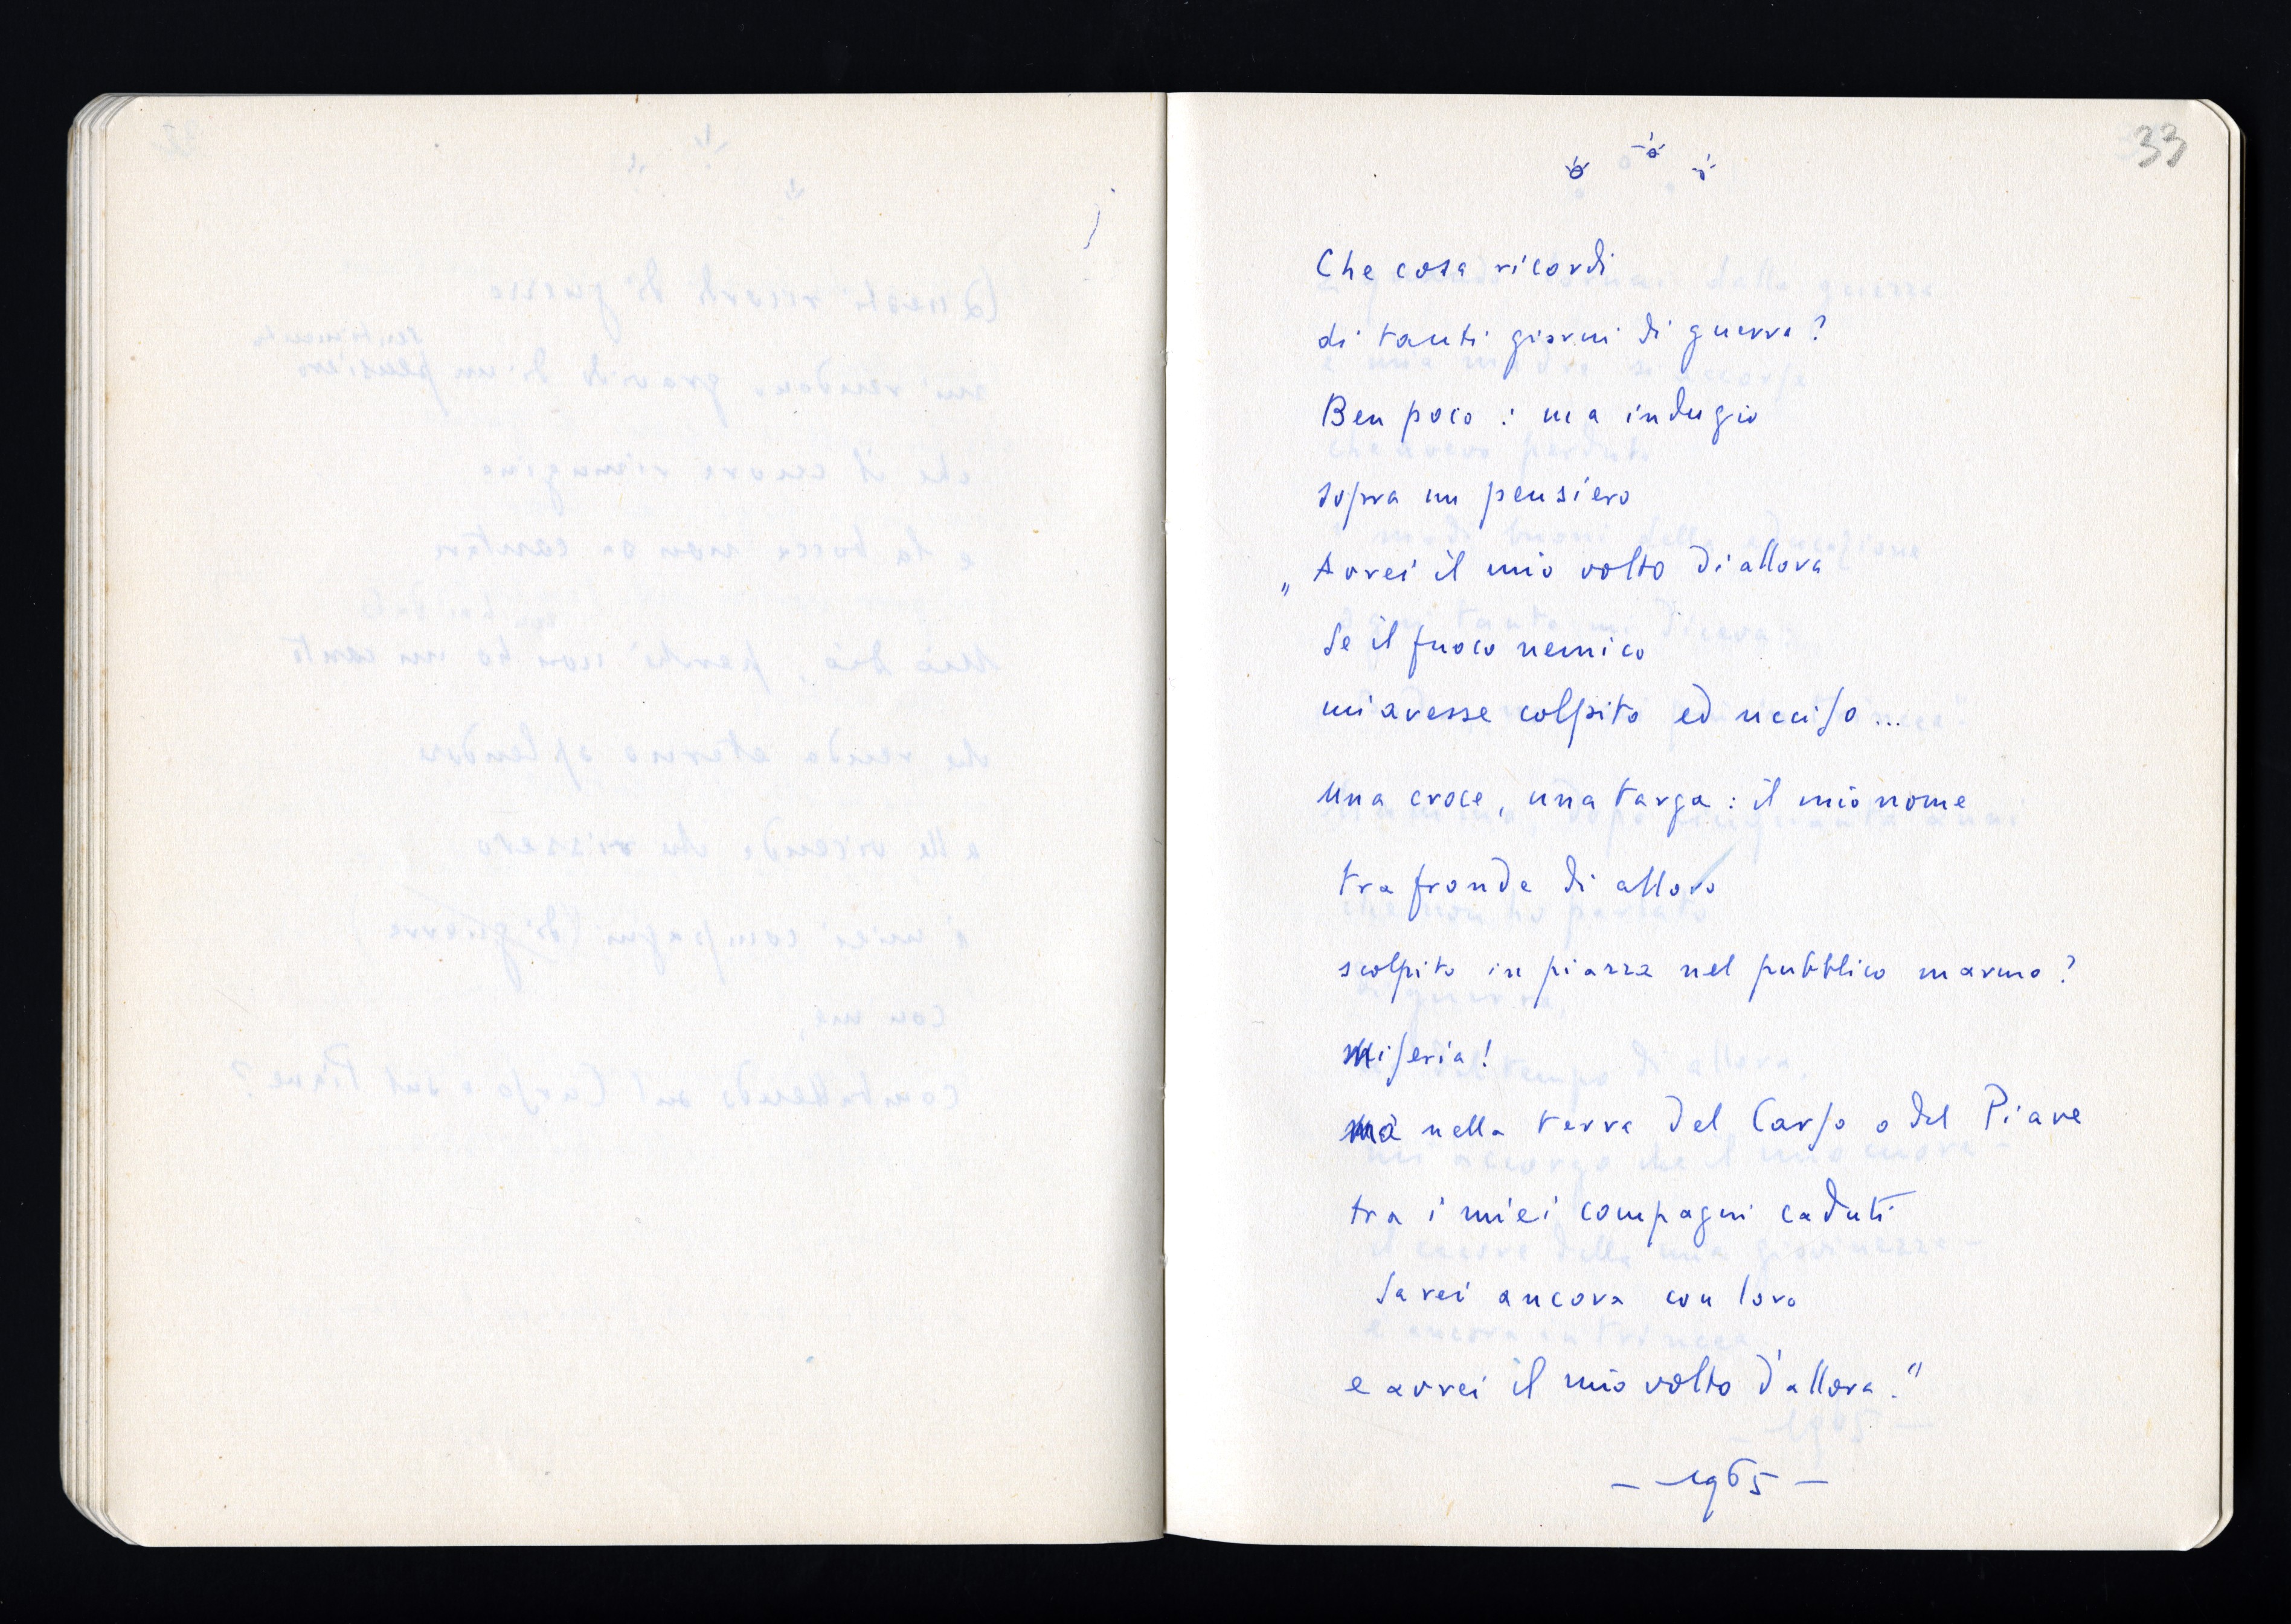 33
Che cosa ricordi
di tanti giorni di guerra?
Ben poco : ma indugio
sopra un pensiero
„ Avrei il mio volto di allora
se il fuoco nemico
mi avesse colpito ed ucciso ...
Una croce, una targa : il mio nome
tra fronde di alloro
scolpito in piazza nel pubblico marmo ?
Miseria!
Ma nella terra del Carso o del Piave
tra i miei compagni caduti
sarei ancora con loro
e avrei il mio volto d'allora."
— 1965 —